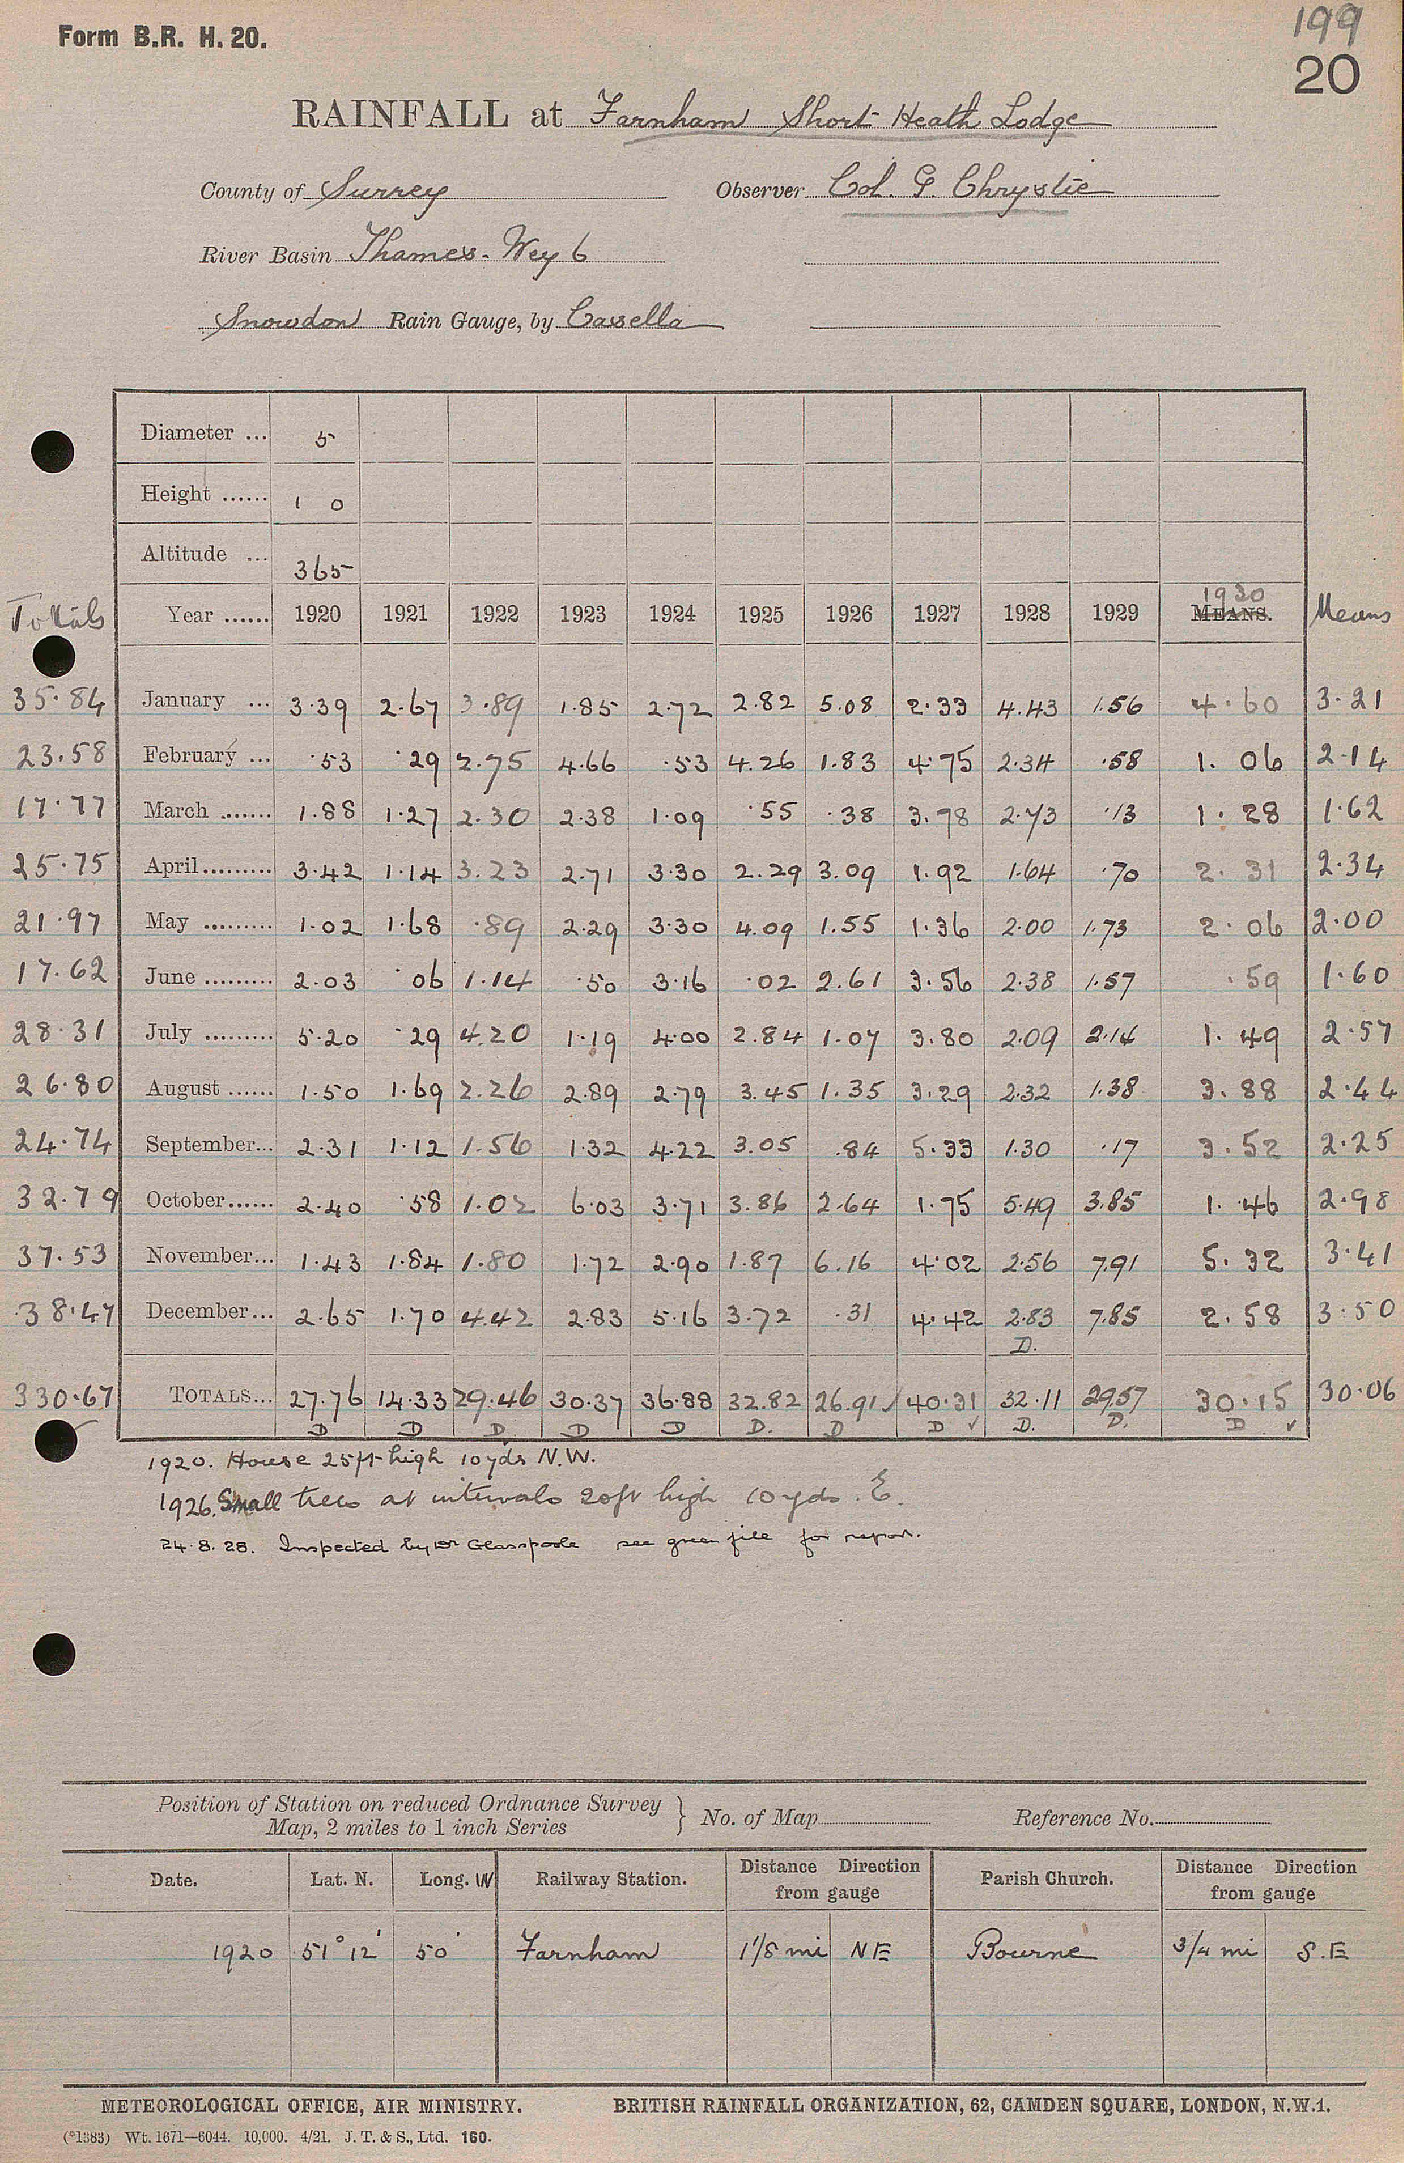 Form B.R. H. 20.
199
20
RAINFALL at Farnham Short Heath Lodge
County of Surrey Observer Col. G. Chrystie
River Basin Thames - Wey 6
Snowdon Rain Gauge, by Casella
Diameter ... 5
Height ...... 1 0
Altitude ... 365
Totals Year ...... 1920 1921 1922 1923 1924 1925 1926 1927 1928 1929 1930 MEANS. Means
35.84 January ... 3.39 2.67 3.89 1.85 2.72 2.82 5.08 2.33 4.43 1.56 4.60 3.21
23.58 February ... .53 .29 2.75 4.66 .53 4.26 1.83 4.75 2.34 .58 1.06 2.14
17.77 March ....... 1.88 1.27 2.30 2.38 1.09 .55 .38 3.78 2.73 .13 1.28 1.62
25.75 April ......... 3.42 1.14 3.23 2.71 3.30 2.29 3.09 1.92 1.64 .70 2.31 2.34
21.97 May ......... 1.02 1.68 .89 2.29 3.30 4.09 1.55 1.36 2.00 1.73 2.06 2.00
17.62 June ......... 2.03 .06 1.14 .50 3.16 .02 2.61 3.56 2.38 1.57 .59 1.60
28.31 July ......... 5.20 .29 4.20 1.19 4.00 2.84 1.07 3.80 2.09 2.14 1.49 2.57
26.80 August ...... 1.50 1.69 2.26 2.89 2.79 3.45 1.35 3.29 2.32 1.38 3.88 2.44
24.74 September... 2.31 1.12 1.56 1.32 4.22 3.05 .84 5.33 1.30 .17 3.52 2.25
32.79 October...... 2.40 .58 1.02 6.03 3.71 3.86 2.64 1.75 5.49 3.85 1.46 2.98
37.53 November... 1.43 1.84 1.80 1.72 2.90 1.87 6.16 4.02 2.56 7.91 5.32 3.41
38.47 December... 2.65 1.70 4.42 2.83 5.16 3.72 .31 4.42 2.83 7.85 2.58 3.50
D.
330.67 TOTALS... 27.76 14.33 29.46 30.37 36.88 32.82 26.91 ✓ 40.31 32.11 29.57 30.15 30.06
D D D D D D. D D ✓ D. D. D ✓
1920. House 25ft high 10yds N.W.
1926. Small trees at intervals 20ft high 10 yds. E.
24.8.28. Inspected by Dr Glasspoole see green file for report.
Position of Station on reduced Ordnance Survey Map, 2 miles to 1 inch Series } No. of Map Reference No.
Date. Lat. N. Long. W Railway Station. Distance Direction from gauge Parish Church. Distance Direction from gauge
1920 51° 12' 50' Farnham 1 1/8 mi NE Bourne 3/4 mi S.E
METEOROLOGICAL OFFICE, AIR MINISTRY. BRITISH RAINFALL ORGANIZATION, 62, CAMDEN SQUARE, LONDON, N.W.1.
(*1383) Wt. 1671—6044. 10,000. 4/21. J. T. & S., Ltd. 160.